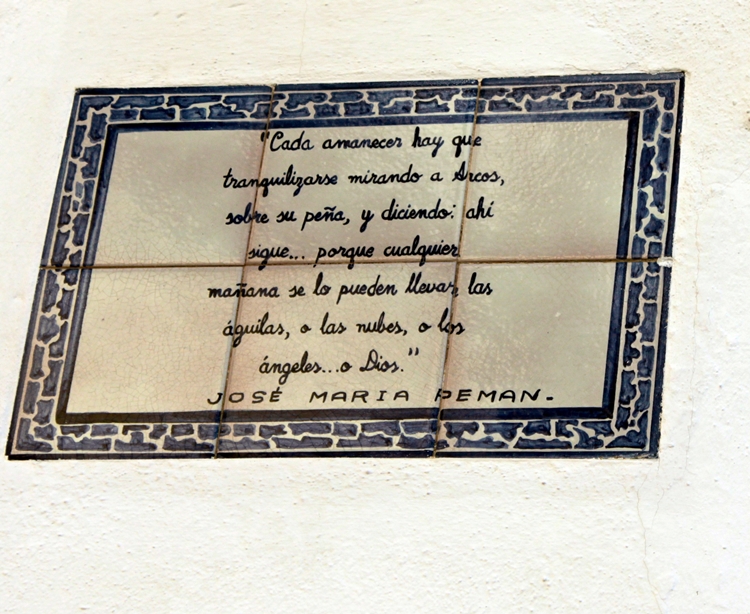 "Cada amanecer hay que
tranquilizarse mirando a Arcos,
sobre su peña, y diciendo: ahí
sigue... porque cualquier
mañana se lo pueden llevar, las
águilas, o las nubes, o los
ángeles...o Dios."
JOSÉ MARIA PEMAN.-